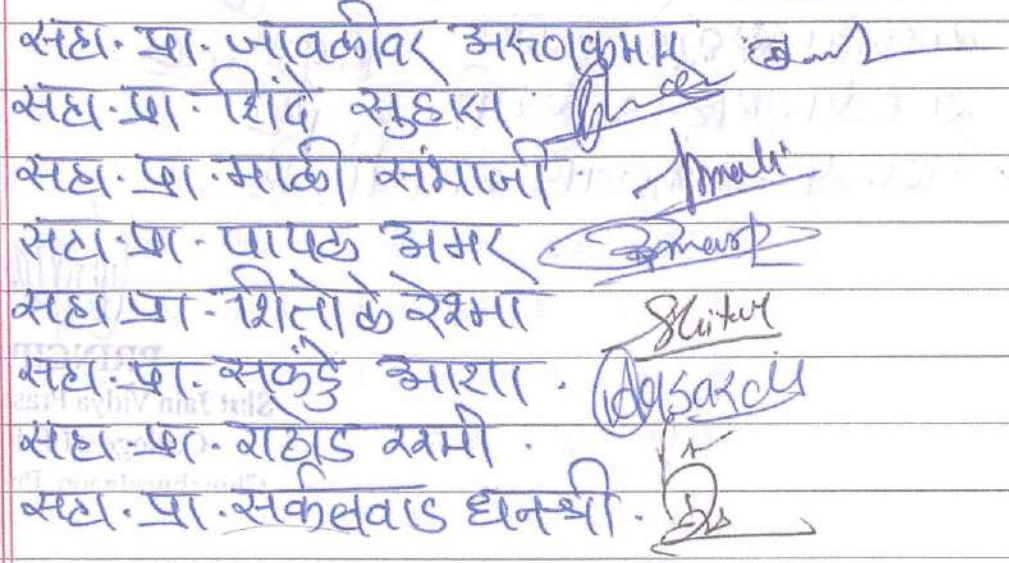 सहा. प्रा. जावळीकर अरुणकुमार
सहा. प्रा. शिंदे सुहास.
सहा. प्रा. माळी संभाजी.
सहा. प्रा. पापळ अमर
सहा प्रा. शितोळे रेश्मा Shitole
सहा. प्रा. सकुंडे आशा.
सहा. प्रा. राठोड रश्मी.
सहा. प्रा. सर्कलवाड धनश्री.